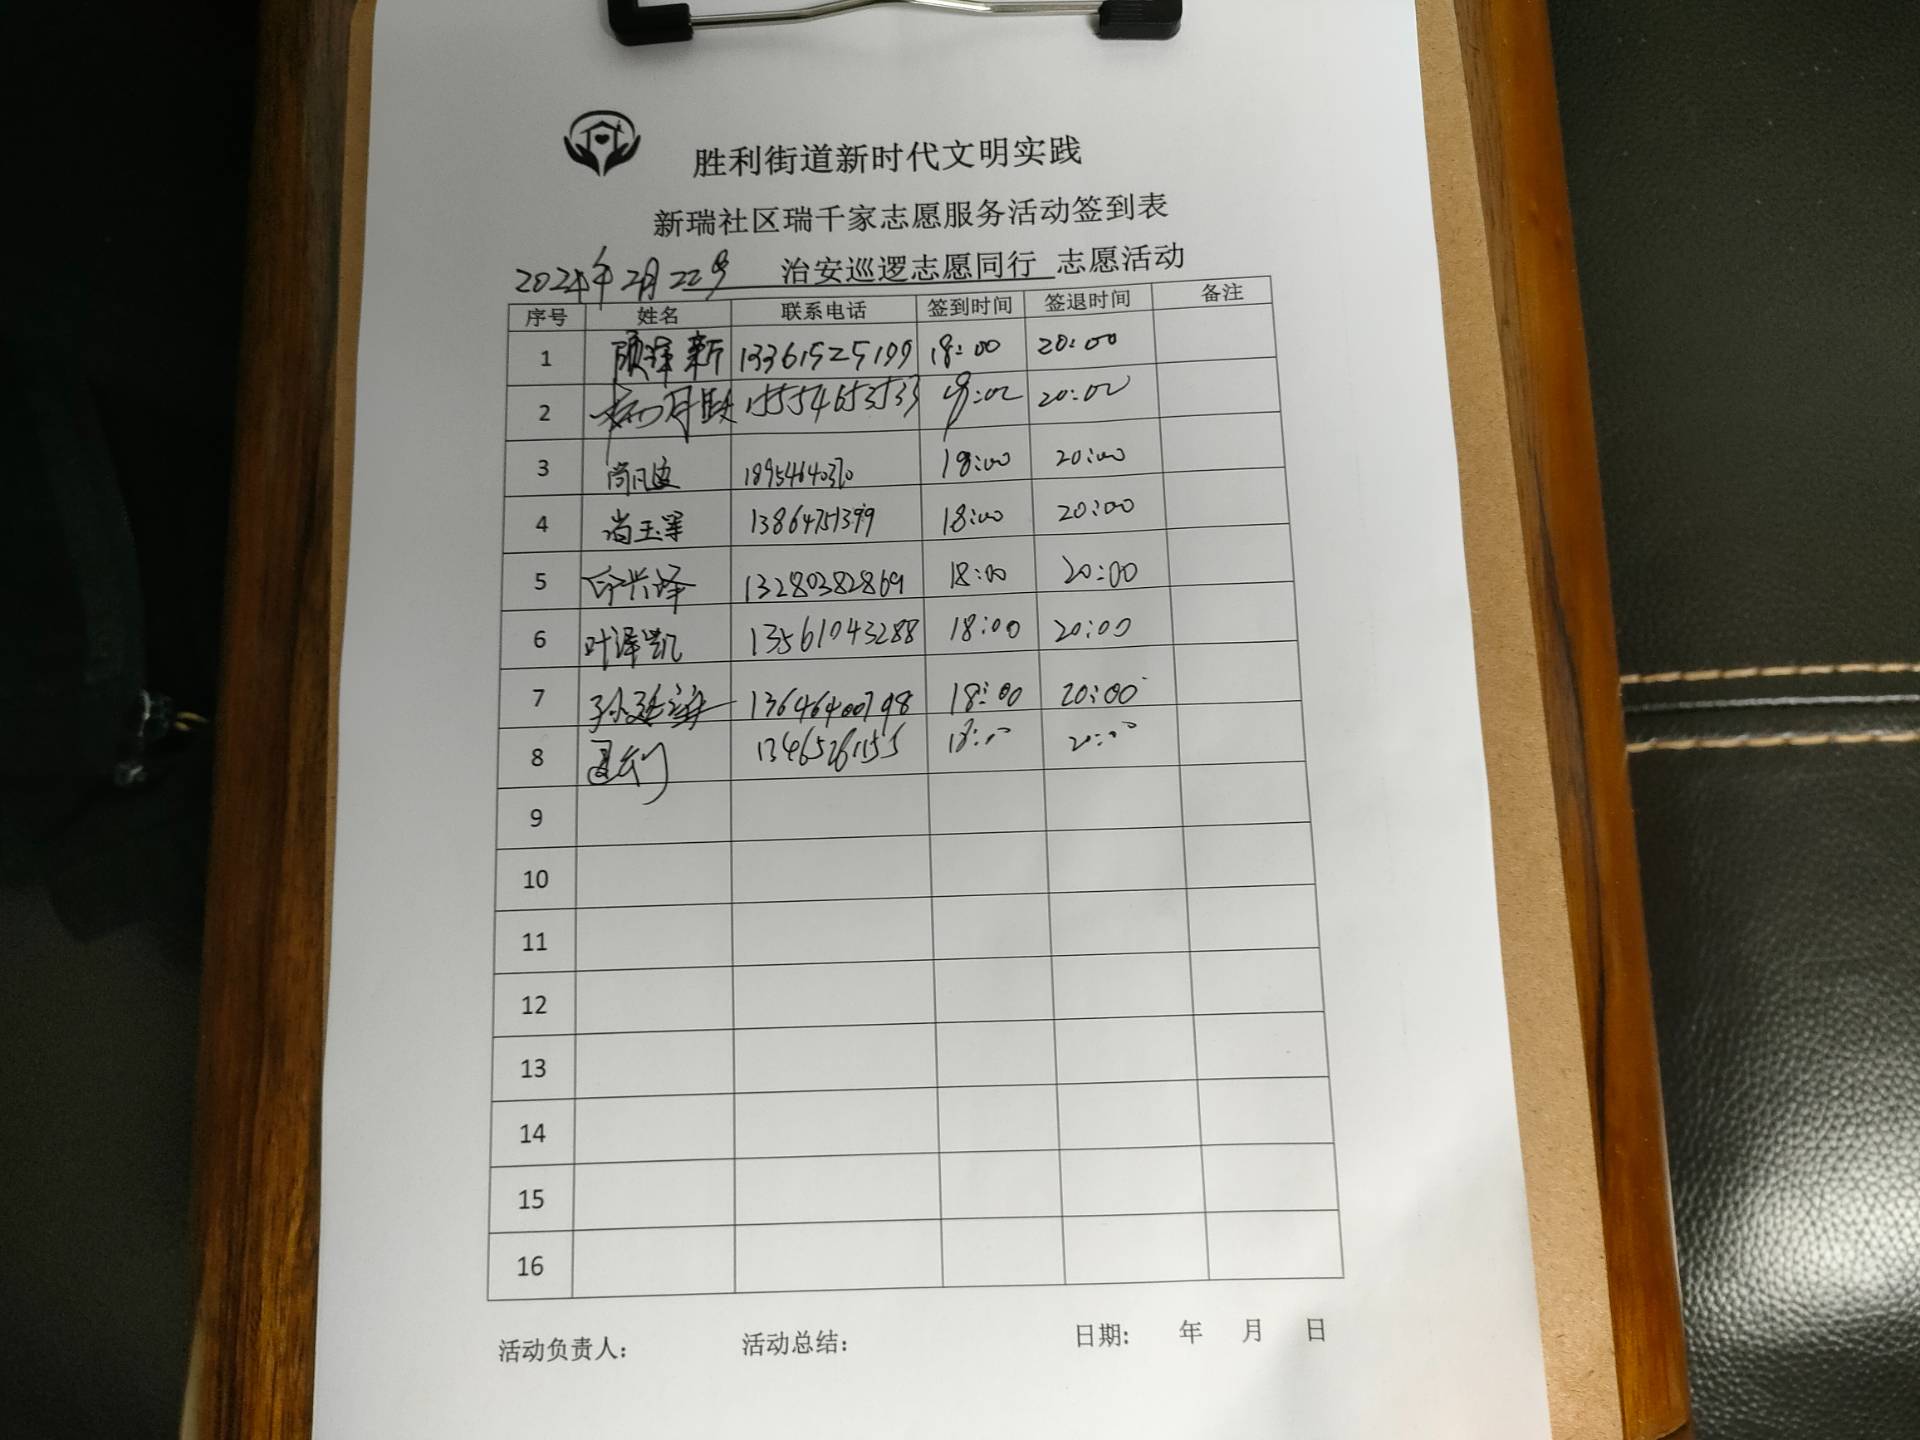 胜利街道新时代文明实践
新瑞社区瑞千家志愿服务活动签到表
2024年2月22号 治安巡逻志愿同行 志愿活动
序号 姓名 联系电话 签到时间 签退时间 备注
1 顾泽新 13361525199 18:00 20:00
2 15554653533 20:00
3 尚 18954640370 18:00 20:00
4 尚玉军 13864751399 18:00 20:00
5 印兴泽 13280382869 18:00 20:00
6 叶泽凯 13561043288 18:00 20:00
7 孙 13646400798 18:00 20:00
8 13465261155 18:00 20:00
9
10
11
12
13
14
15
16
活动负责人: 活动总结: 日期: 年 月 日